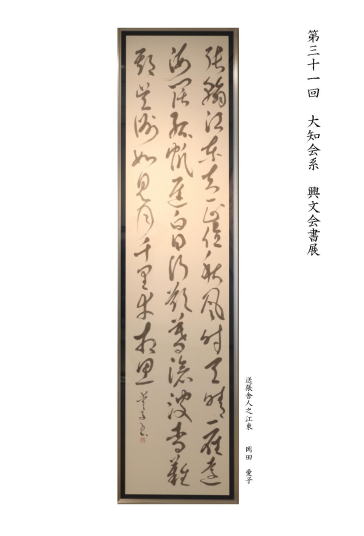 第三十一回 大知会系 興文会書展
張翰江東去正值秋風時天晴一雁遠
海闊孤帆遲白日行欲暮滄波杳難
期吳洲如見月千里幸相思
送張舎人之江東 岡田 愛子